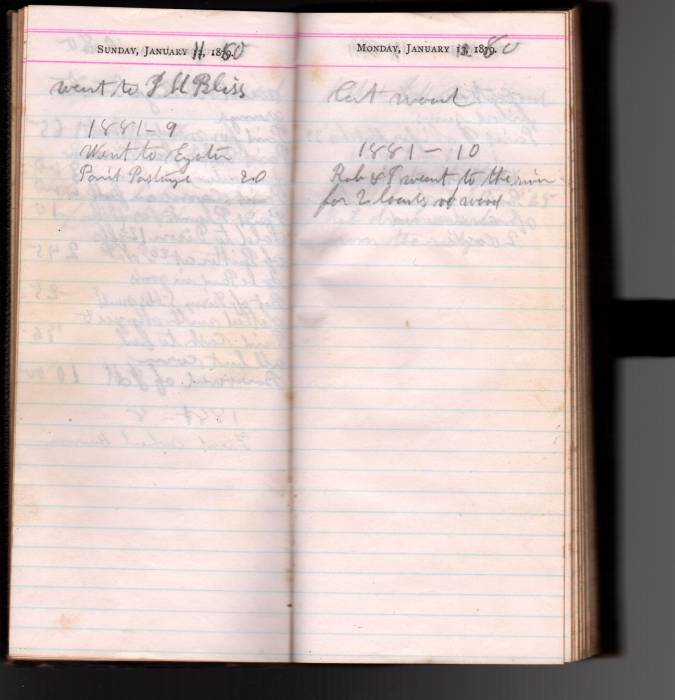 SUNDAY, JANUARY 11, 1880
went to J H Bliss
1881-9
Went to Exeter
Paid Postage 20
MONDAY, JANUARY 12, 1880
Cut wood
1881-10
Rob & I went to the river
for 2 loads of wood